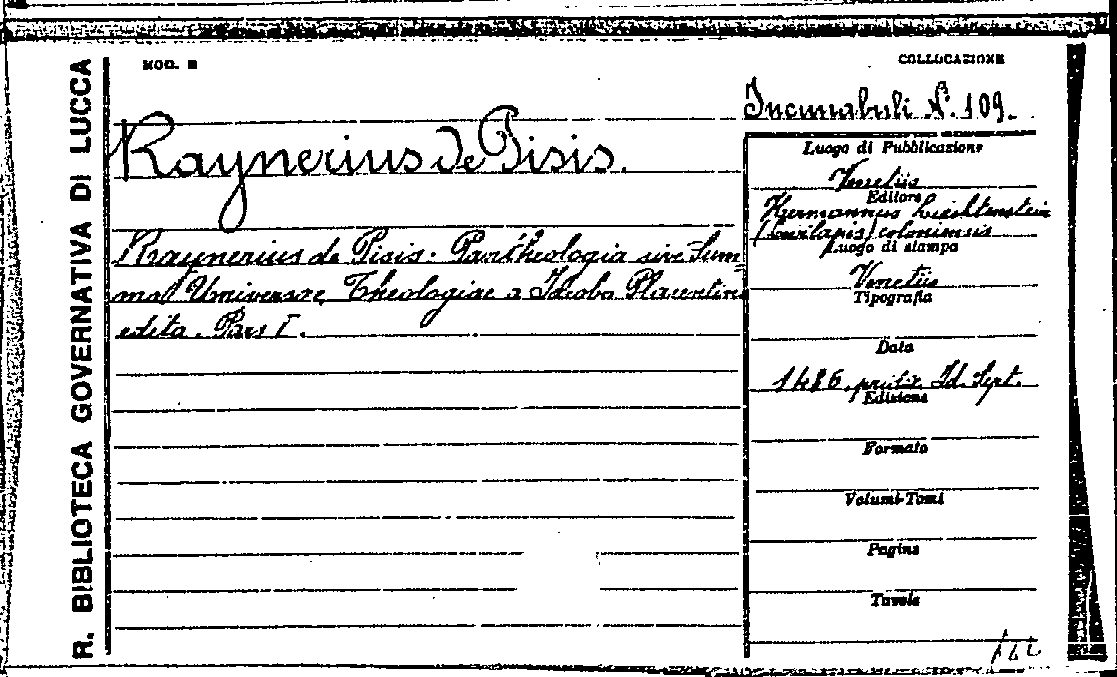 R. BIBLIOTECA GOVERNATIVA DI LUCCA
MOD. B
COLLOCAZIONE
Incunabuli N. 109.
Raynerius de Pisis.
Raynerius de Pisis: Pantheologia sive Sum=
ma Universae Theologiae a Jacobo Placentino
edita. Pars I.
Luogo di Pubblicazione
Venetiis
Editore
Hermannus Liechtenstein
coloniensis
Luogo di stampa
Venetiis
Tipografia
Data
1486, pridie Id. Sept.
Edizione
Formato
Volumi-Tomi
Pagine
Tavole